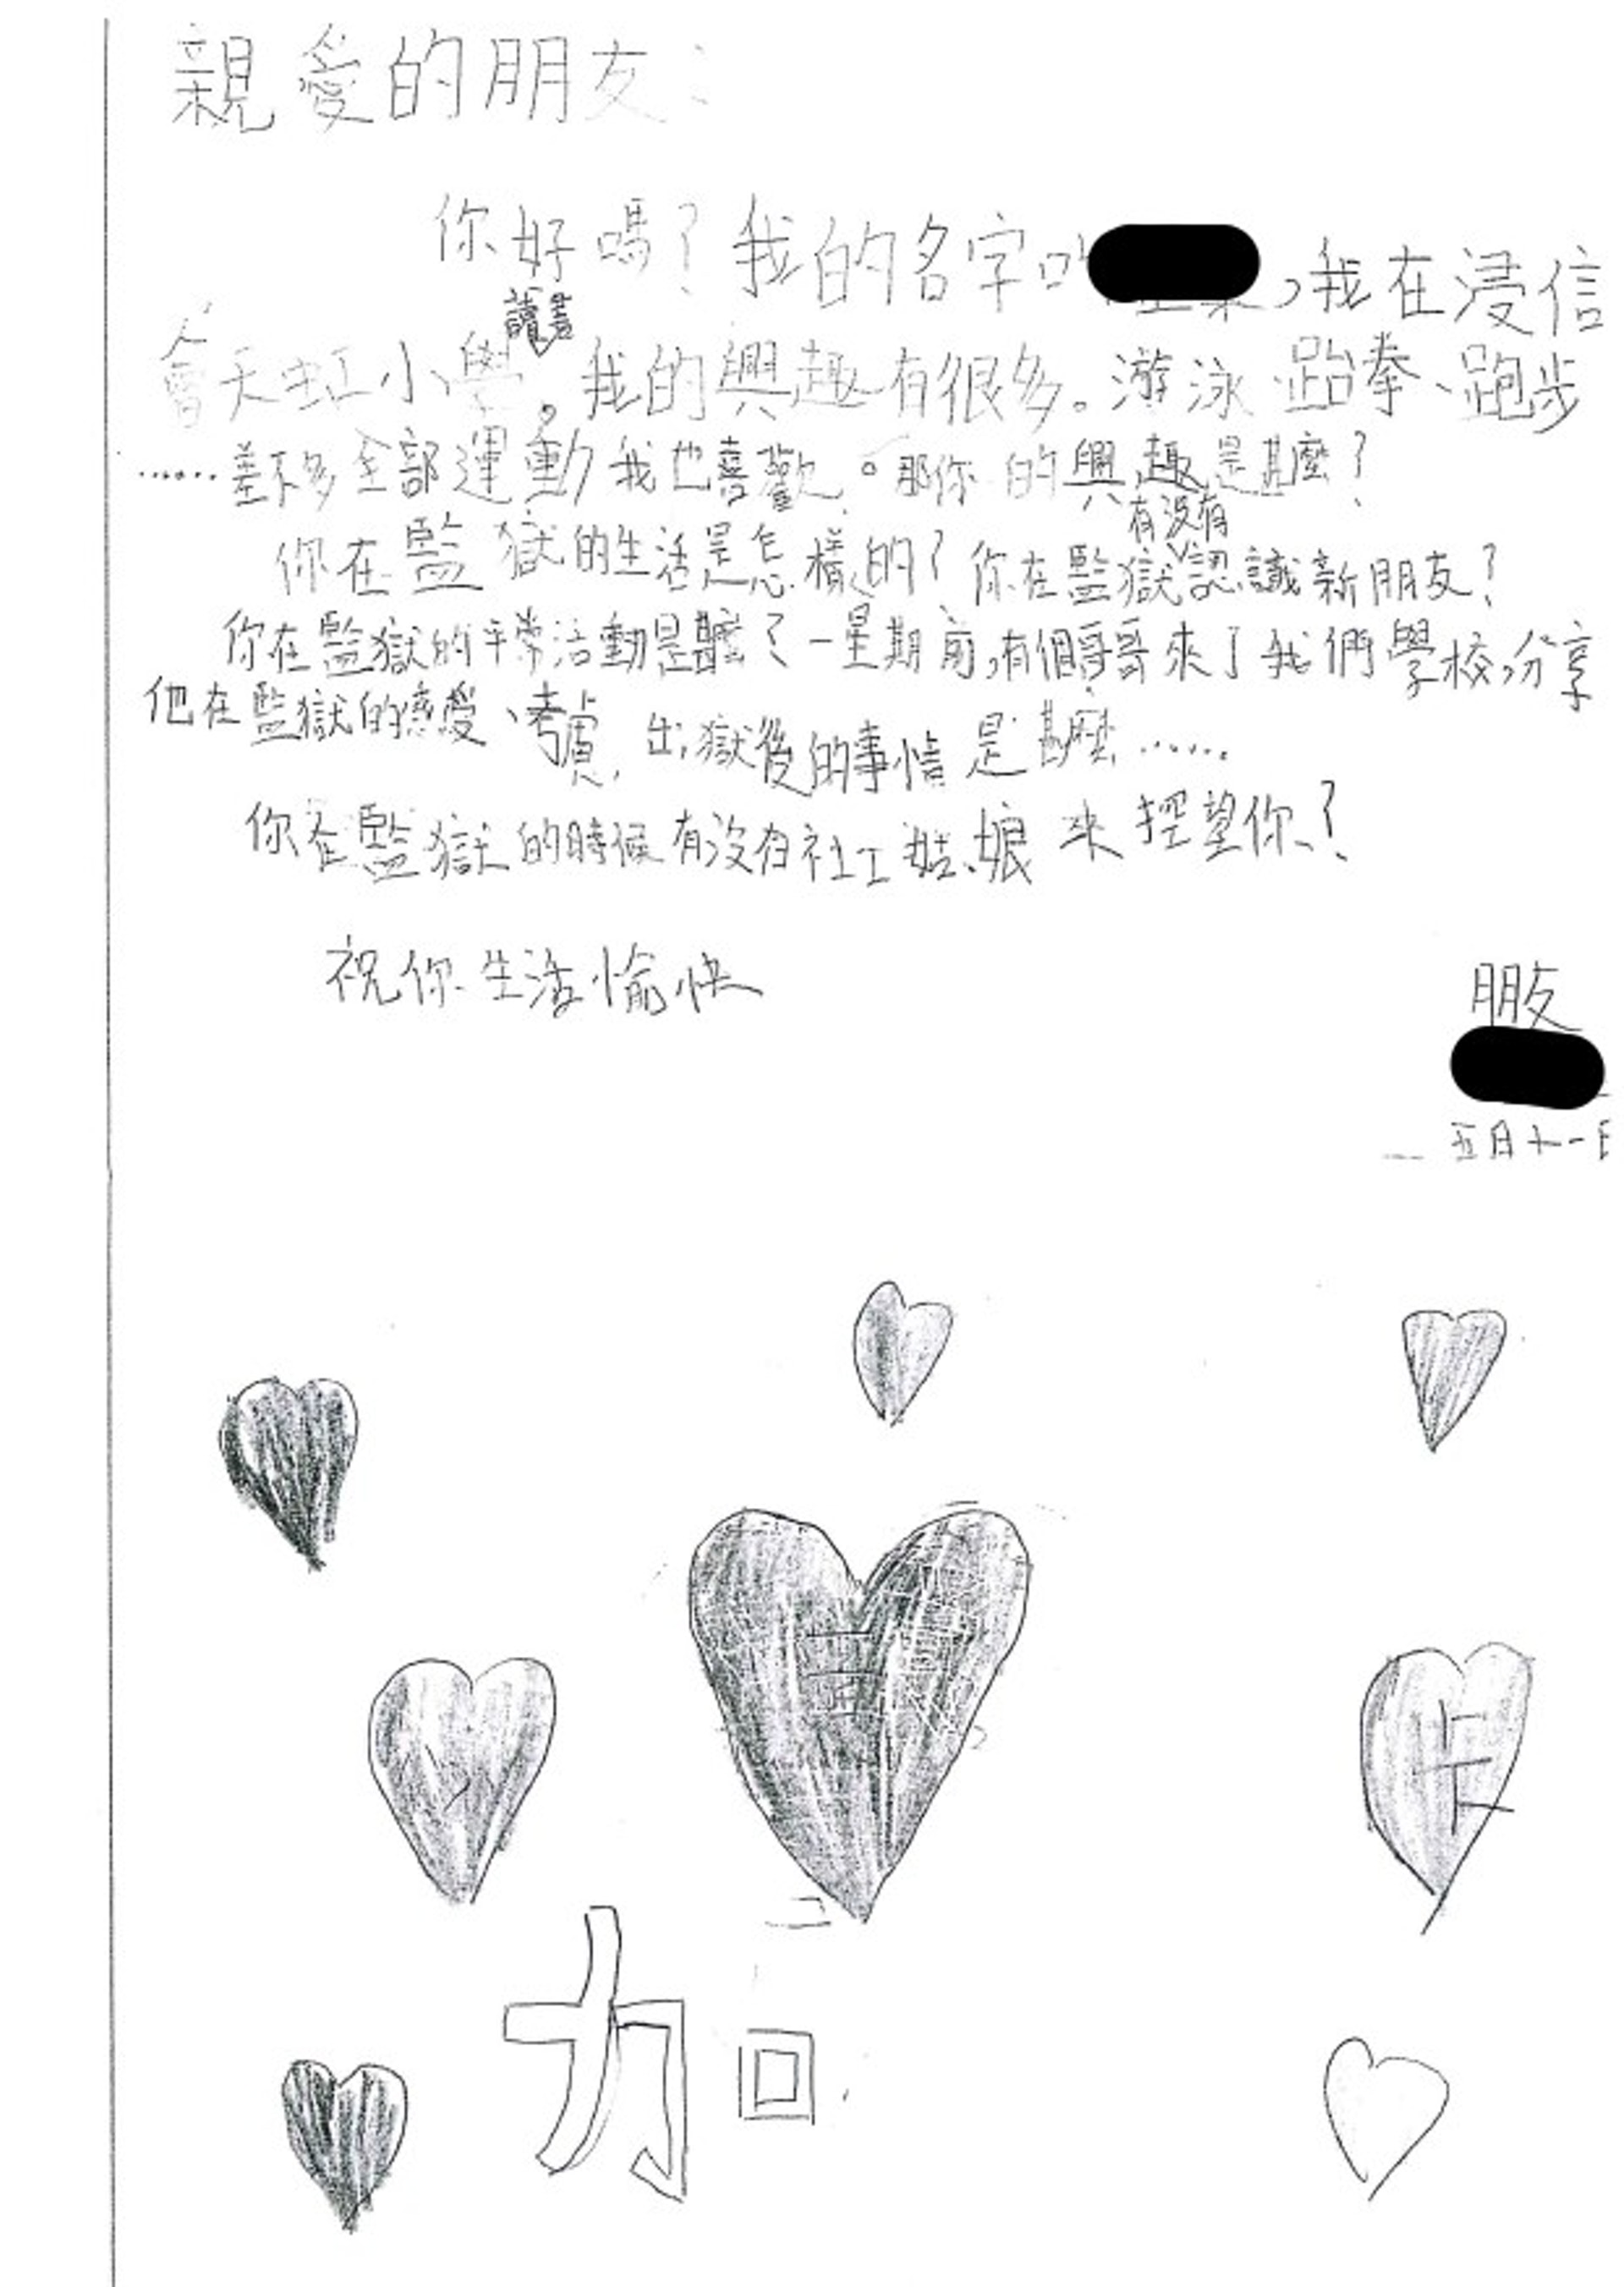 親愛的朋友：
你好嗎？我的名字叫，我在浸信
會天虹小學讀書。我的興趣有很多。游泳、跆拳、跑步
......差不多全部運動我也喜歡。那你的興趣是甚麼？
你在監獄的生活是怎樣的？你在監獄有沒有認識新朋友？
你在監獄的平常活動是甚麼？一星期前，有個哥哥來了我們學校，分享
他在監獄的感受、考慮出獄後的事情是甚麼......
你在監獄的時候有沒有社工姑娘來探望你？
祝你生活愉快
朋友
五月十一日
加